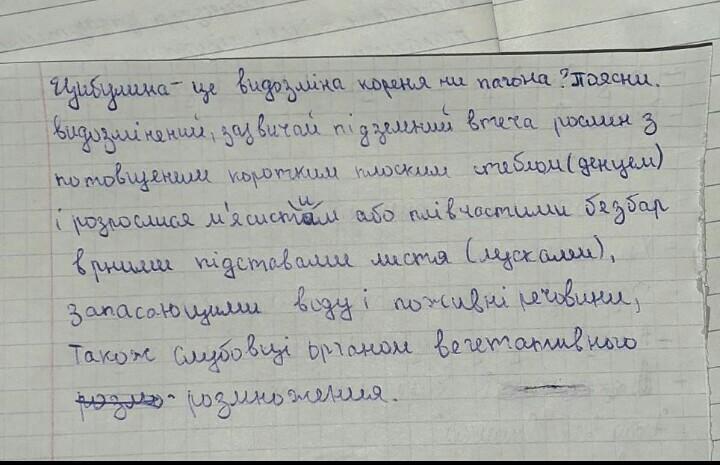 Цибулина - це видозміна кореня чи пагона? Поясни.
видозмінений, зазвичай підземний втеча рослин з
потовщеним коротким плоским стеблом (денцем)
і розрослися м'ясистими або плівчастими безбар
врними підставами листя (лускалем),
запасающими воду і поживні речовини,
також слубовці органом вегетативного
розмноження.